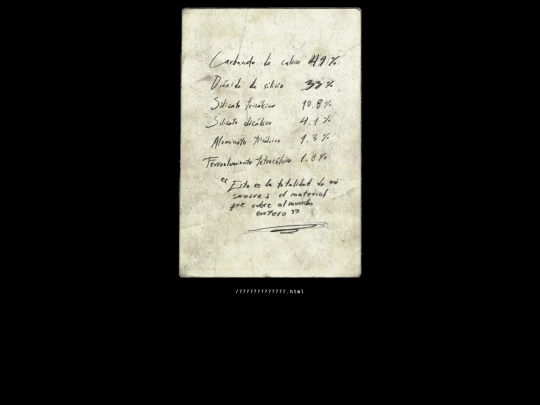 Carbonato de calcio 49%
Dióxido de silicio 33%
Silicato tricálcico 10.8%
Silicato dicálcico 4.1%
Aluminato tricálcico 1.3%
Ferroaluminato tetracálcico 1.8%
"Esta es la totalidad de mi
sangre; el material
que cubre al mundo
entero"
/?????????????.html